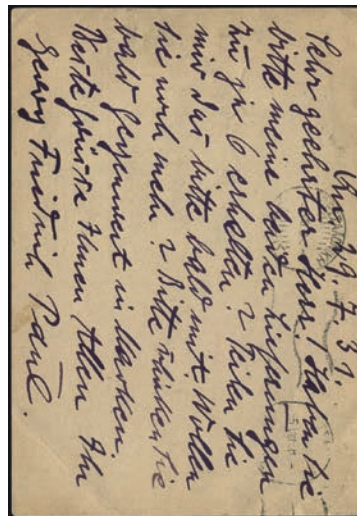 29. 7. 31.
Sehr geehrter Herr! Haben Sie
bitte meine beiden Lieferungen
zu je 6 erhalten? Teilen Sie
mir das bitte bald mit. Wollen
Sie noch mehr? Bitte schicken Sie
bald Gegenwert in Marken.
Beste Grüße Ihnen Allen Ihr
Georg Friedrich Paul.